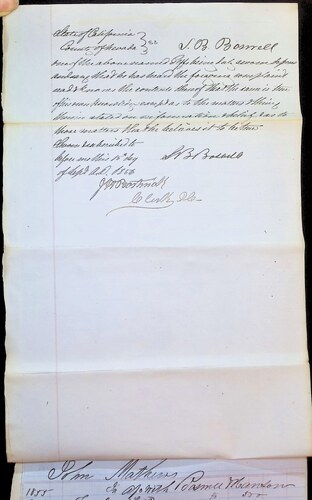 State of California
County of Nevada } ss S. B. Boswell
one of the above named Pffs being duly sworn deposes
and says that he has heard the foregoing complaint
read & knows the contents thereof that the same is true
of his own knowledge except as to the matters & things
therein stated on information & belief & as to
those matters that he believes it to be true
Sworn & subscribed to
before me this 15 day S B Boswell
of Sept A.D. 1856
J H Bostwick
Clerk
John Mathews
1855 To a/c with Boswell & Hanson